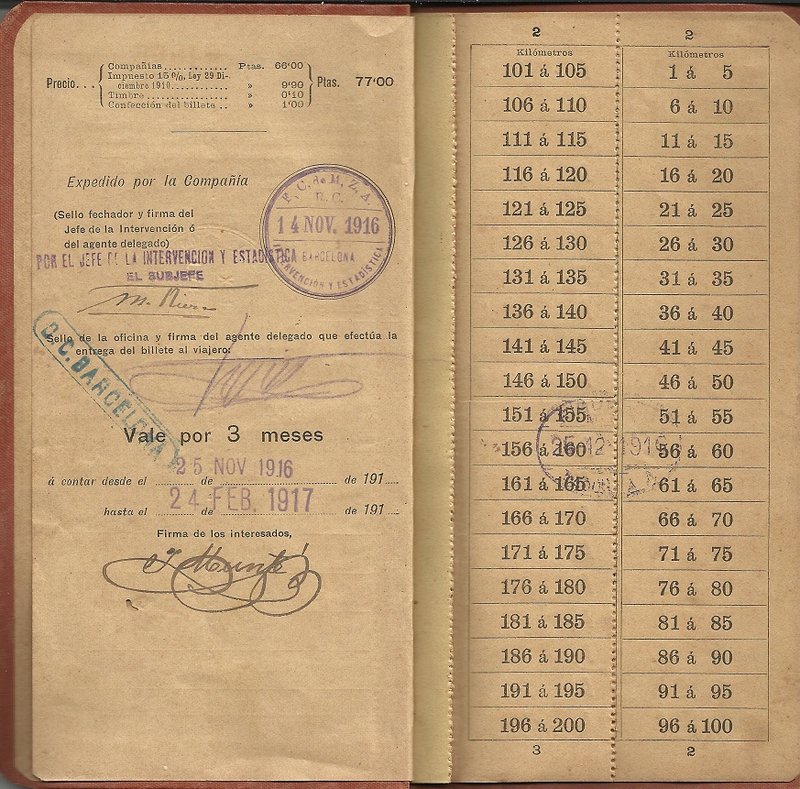 Precio...
Compañías............ Ptas. 66'00
Impuesto 15 %, Ley 29 Di-
ciembre 1910........ » 9'90
Timbre................ » 0'10
Confección del billete.. » 1'00
Ptas. 77'00
Expedido por la Compañía
(Sello fechador y firma del
Jefe de la Intervención ó
del agente delegado)
F. C. de M. Z. A.
R. C.
14 NOV. 1916
BARCELONA
INTERVENCIÓN Y ESTADÍSTICA
POR EL JEFE DE LA INTERVENCION Y ESTADISTICA
EL SUBJEFE
Sello de la oficina y firma del agente delegado que efectúa la
entrega del billete al viajero:
D. C. BARCELONA
Vale por 3 meses
25 NOV 1916
á contar desde el ........ de ........ de 191....
24 FEB. 1917
hasta el ........ de ........ de 191....
Firma de los interesados,
2
Kilómetros
101 á 105
106 á 110
111 á 115
116 á 120
121 á 125
126 á 130
131 á 135
136 á 140
141 á 145
146 á 150
151 á 155
156 á 160
161 á 165
166 á 170
171 á 175
176 á 180
181 á 185
186 á 190
191 á 195
196 á 200
3
2
Kilómetros
1 á 5
6 á 10
11 á 15
16 á 20
21 á 25
26 á 30
31 á 35
36 á 40
41 á 45
46 á 50
51 á 55
56 á 60
61 á 65
66 á 70
71 á 75
76 á 80
81 á 85
86 á 90
91 á 95
96 á 100
2